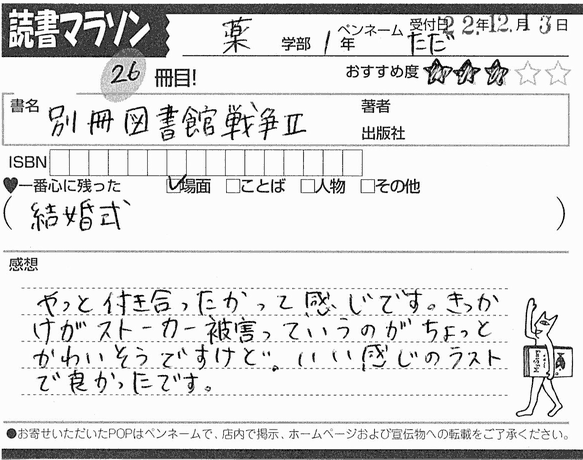 読書マラソン
薬 学部 1 年 ペンネーム ただ 受付日 22.年12.月13日
26 冊目! おすすめ度 ★★★☆☆
書名 別冊図書館戦争Ⅱ 著者
出版社
ISBN
♥一番心に残った ☑場面 □ことば □人物 □その他
(結婚式)
感想
やっと付き合ったかって感じです。きっか
けがストーカー被害っていうのがちょっと
かわいそうですけど。いい感じのラスト
で良かったです。
●お寄せいただいたPOPはペンネームで、店内で掲示、ホームページおよび宣伝物への転載をご了承ください。